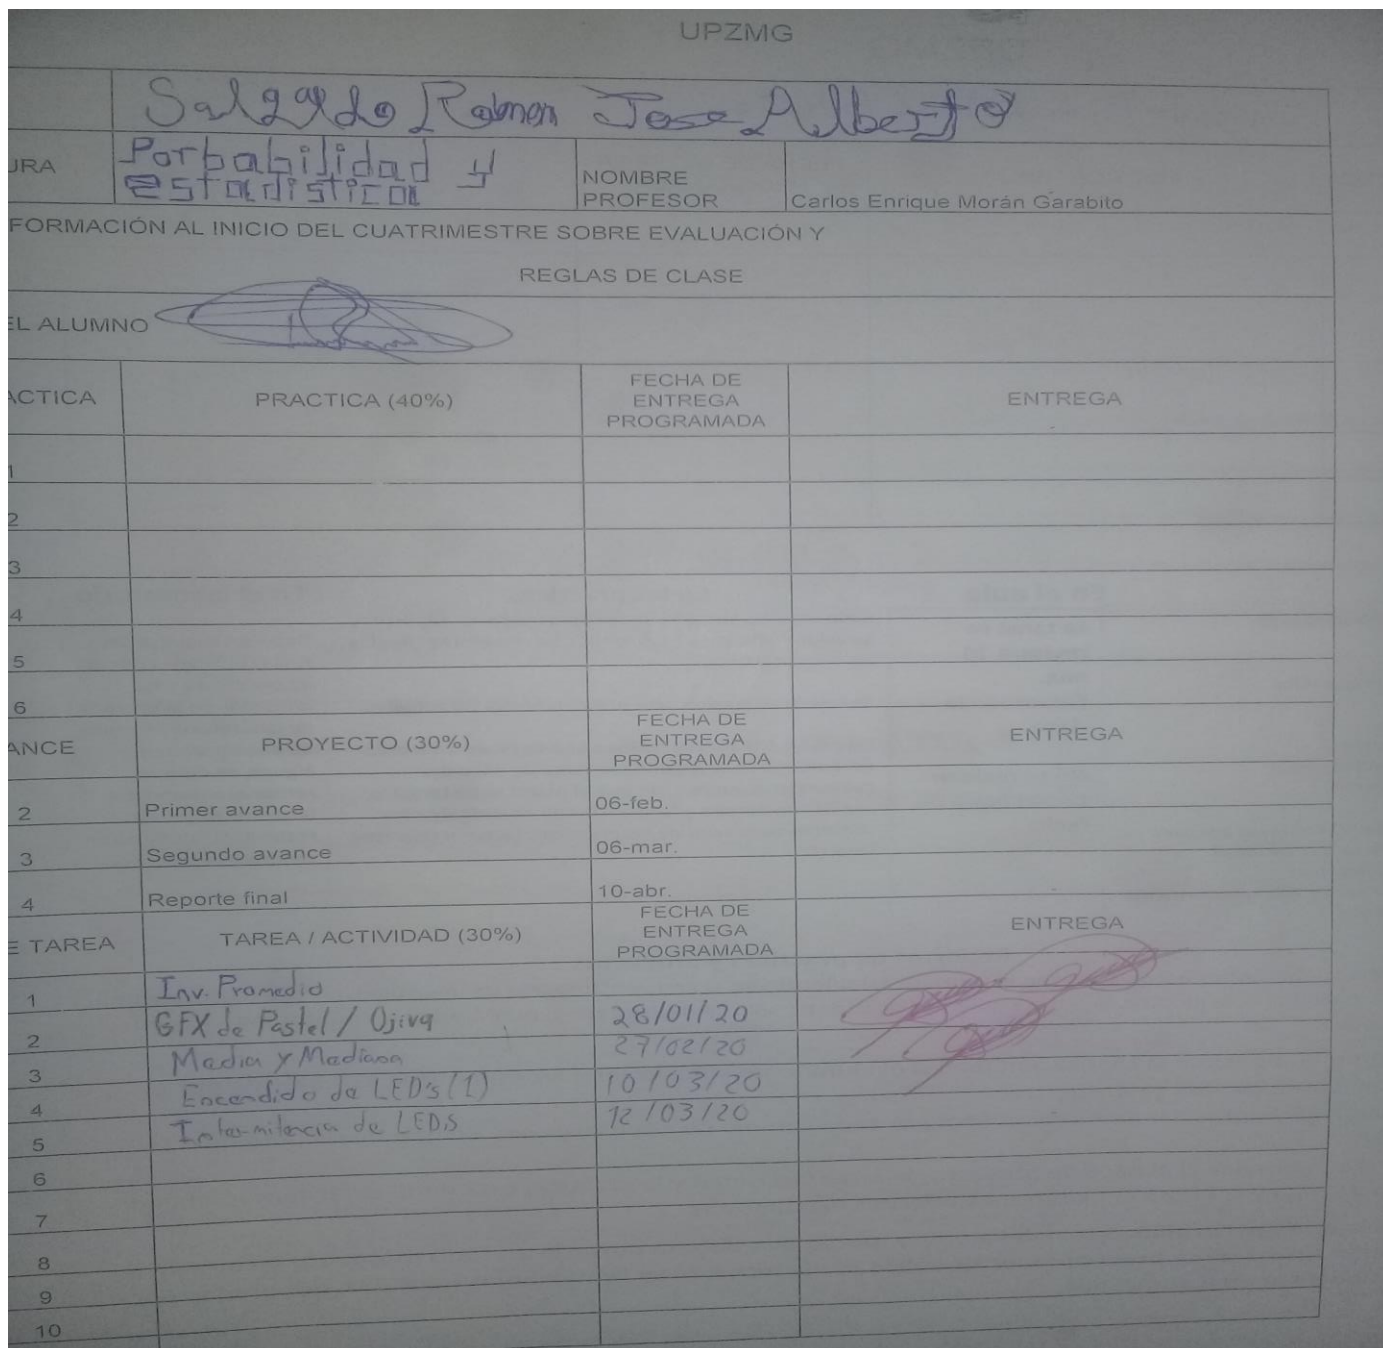 UPZMG
Salgado Ramon Jose Alberto
URA
Porbabilidad y
estadistica
NOMBRE
PROFESOR
Carlos Enrique Morán Garabito
FORMACIÓN AL INICIO DEL CUATRIMESTRE SOBRE EVALUACIÓN Y
REGLAS DE CLASE
EL ALUMNO
ACTICA
PRACTICA (40%)
FECHA DE
ENTREGA
PROGRAMADA
ENTREGA
1
2
3
4
5
6
ANCE
PROYECTO (30%)
FECHA DE
ENTREGA
PROGRAMADA
ENTREGA
2 Primer avance 06-feb.
3 Segundo avance 06-mar.
4 Reporte final 10-abr.
E TAREA
TAREA / ACTIVIDAD (30%)
FECHA DE
ENTREGA
PROGRAMADA
ENTREGA
1 Inv. Promedio
2 GFX de Pastel / Ojiva 28/01/20
3 Media y Mediana 27/02/20
4 Encendido de LED's (1) 10/03/20
5 Intermitencia de LEDS 12/03/20
6
7
8
9
10